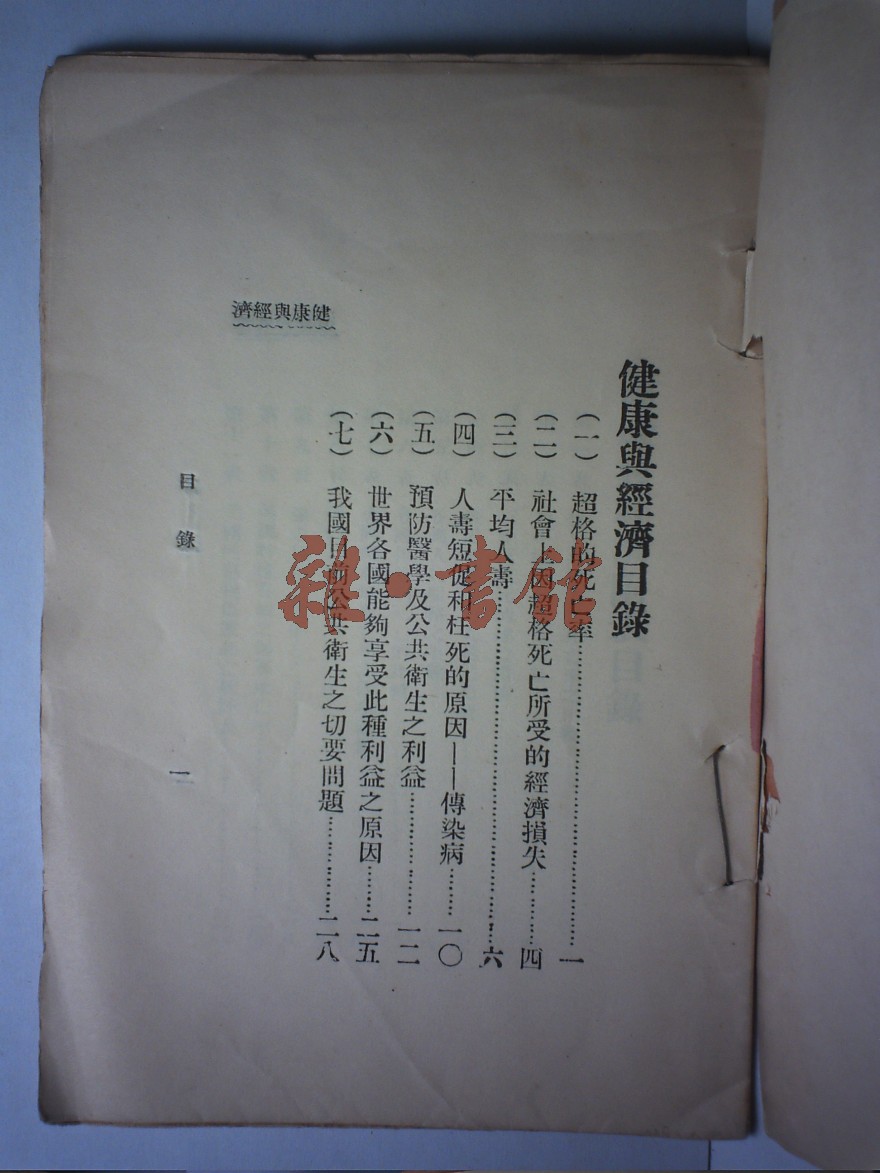 健康與經濟目錄
(一) 超格的死亡率……一
(二) 社會上因超格死亡所受的經濟損失……四
(三) 平均人壽……六
(四) 人壽短促和枉死的原因——傳染病……一〇
(五) 預防醫學及公共衛生之利益……一二
(六) 世界各國能夠享受此種利益之原因……二五
(七) 我國目前公共衛生之切要問題……二八
濟經與康健
目錄
一
雜·書館